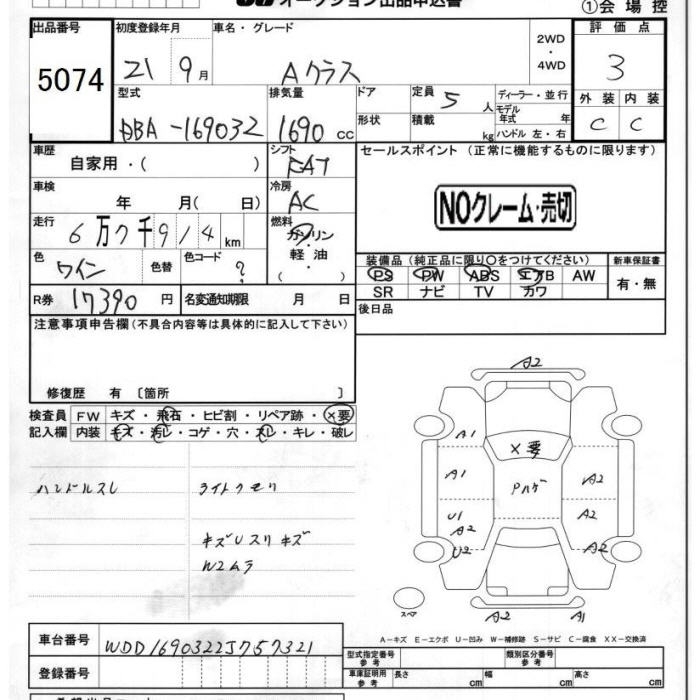 オークション出品申込書 ①会場控
出品番号 初度登録年月 車名・グレード 2WD・4WD 評価点
5074 21年9月 Aクラス 3
型式 排気量 ドア 定員 5人 ディーラー・並行 外装 内装
DBA-169032 1690cc 形状 積載 kg モデル年式 年 ハンドル 左・右 C C
車歴 自家用・( ) シフト FAT セールスポイント(正常に機能するものに限ります)
車検 年 月( 日) 冷房 AC NOクレーム・売切
走行 6万7千914km 燃料 ガソリン・軽油・( )
色 ワイン 色替 色コード ?
装備品(純正品に限り○をつけてください) 新車保証書
PS PW ABS エアB AW 有・無
SR ナビ TV カワ
R券 17390円 名変通知期限 月 日 後日品
注意事項申告欄(不具合内容等は具体的に記入して下さい)
修復歴 有〔箇所 〕
検査員 FW キズ・飛石・ヒビ割・リペア跡・×要
記入欄 内装 キズ・汚レ・コゲ・穴・スレ・キレ・破レ
ハンドルスレ ライトクモリ
キズUスリキズ
W2ムラ
A2
A1 ×要
A1 Pハゲ A2
U1 A2 A2
U2 A2
スペア A2 A1
A－キズ E－エクボ U－凹み W－補修跡 S－サビ C－腐食 XX－交換済
車台番号 WDD1690322J757321 型式指定番号 参考 類別区分番号 参考
登録番号 車庫証明用 参考 長さ cm 幅 cm 高さ cm